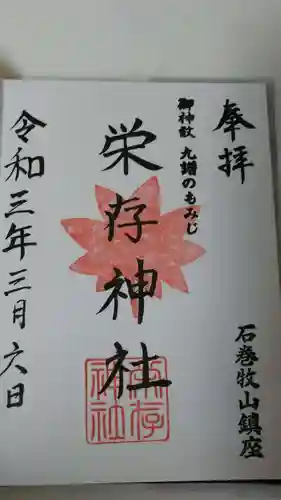 奉拝
石巻牧山鎮座
御神紋 九端のもみじ
栄存神社
栄存神社
令和三年三月六日